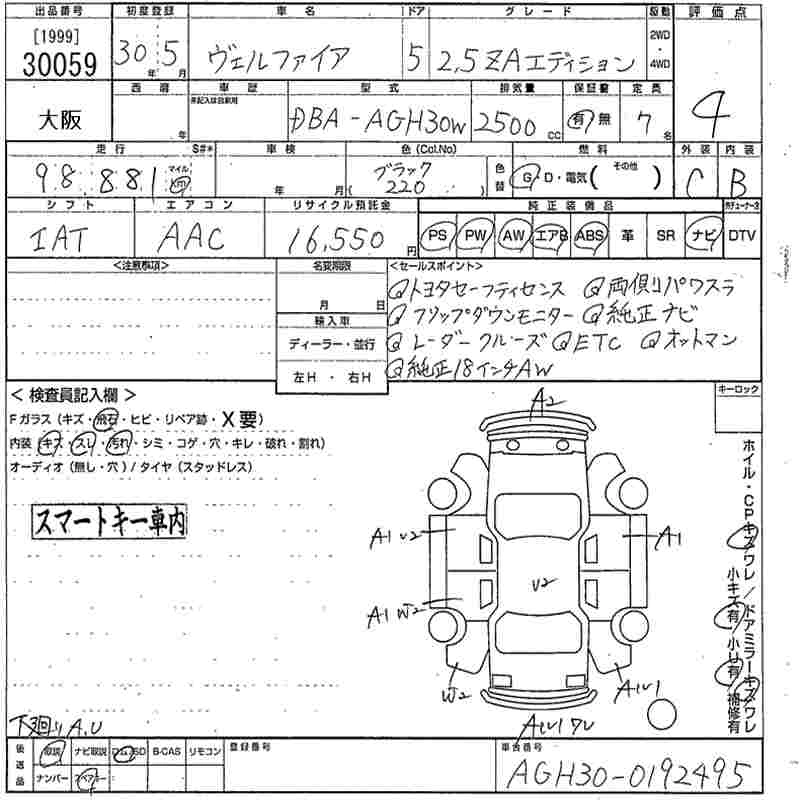 出品番号 初度登録 車名 ドア グレード 駆動 評価点
[1999]
30059
30年 5月 ヴェルファイア 5 2.5 ZAエディション 2WD・4WD
4
西暦 車歴 型式 排気量 保証書 定員
大阪
年 DBA-AGH30W 2500cc 有 無 7名
走行 S#* 車検 色(Col.No) 燃料 外装 内装
98,881 マイル km 年 月 ブラック ( 220 ) 色替 G・D・電気( その他 ) C B
シフト エアコン リサイクル預託金 純正装備品
IAT AAC 16,550円 PS PW AW エアB ABS 革 SR ナビ DTV
<注意事項> 名変期限 <セールスポイント>
月 日
輸入車
ディーラー・並行
左H・右H
Qトヨタセーフティセンス Q両側パワスラ
Qフリップダウンモニター Q純正ナビ
Qレーダークルーズ QETC Qオットマン
Q純正18インチAW
<検査員記入欄> キーロック
Fガラス(キズ・飛石・ヒビ・リペア跡・X要)
内装(キズ・スレ・汚れ・シミ・コゲ・穴・キレ・破れ・割れ)
オーディオ(無し・穴)/タイヤ(スタッドレス)
スマートキー車内
A2
A1 U2
A1
U2
A1 W2
W2
AW1
AW1 ワレ
ホイル・CPキズワレ/ドアミラーキズワレ
小キズ有/小U有/補修有
下廻りA.U
後送品 取説 ナビ取説 B-CAS リモコン 登録番号 車台番号
ナンバー スペアキー
AGH30-0192495